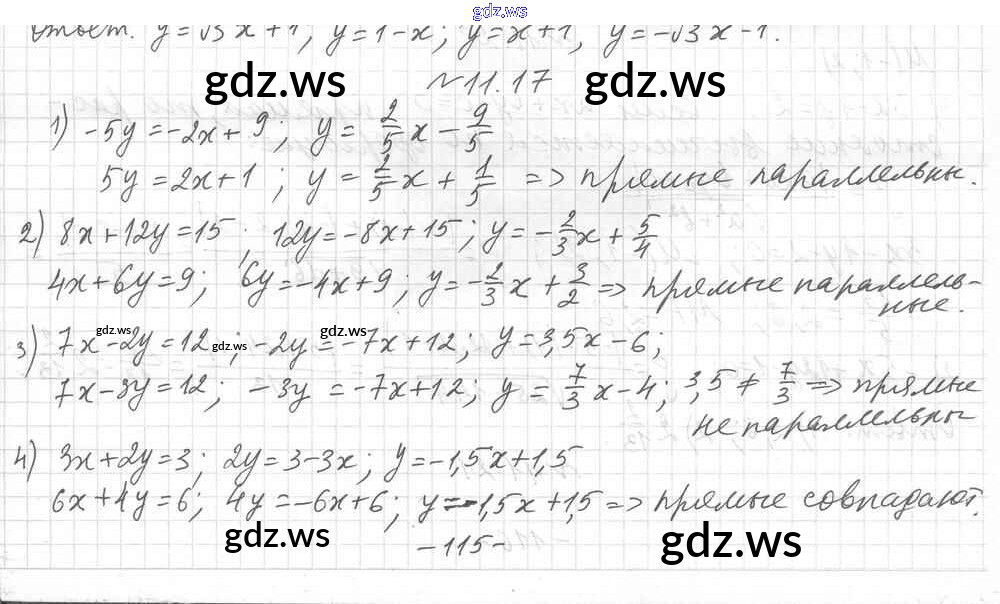 gdz.ws
Ответ. y = √3 x + 1, y = 1 - x; y = x + 1, y = -√3 x - 1.
gdz.ws gdz.ws
№ 11.17
1) -5y = -2x + 9; y = 2/5 x - 9/5
5y = 2x + 1; y = 2/5 x + 1/5 => прямые параллельны.
2) 8x + 12y = 15; 12y = -8x + 15; y = -2/3 x + 5/4
4x + 6y = 9; 6y = -4x + 9; y = -2/3 x + 3/2 => прямые параллель-
ные.
gdz.ws gdz.ws gdz.ws
3) 7x - 2y = 12; -2y = -7x + 12; y = 3,5x - 6;
7x - 3y = 12; -3y = -7x + 12; y = 7/3 x - 4; 3,5 ≠ 7/3 => прямые
не параллельны
4) 3x + 2y = 3; 2y = 3 - 3x; y = -1,5x + 1,5
6x + 4y = 6; 4y = -6x + 6; y = -1,5x + 1,5 => прямые совпадают.
gdz.ws gdz.ws
- 115 -